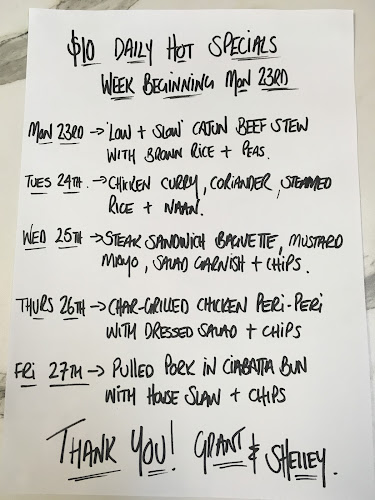 $10 DAILY HOT SPECIALS
WEEK BEGINNING MON 23RD
MON 23RD → 'LOW + SLOW' CAJUN BEEF STEW
WITH BROWN RICE + PEAS.
TUES 24TH. → CHICKEN CURRY, CORIANDER, STEAMED
RICE + NAAN.
WED 25TH → STEAK SANDWICH BAGUETTE, MUSTARD
MAYO, SALAD GARNISH + CHIPS.
THURS 26TH → CHAR-GRILLED CHICKEN PERI-PERI
WITH DRESSED SALAD + CHIPS
FRI 27TH → PULLED PORK IN CIABATTA BUN
WITH HOUSE SLAW + CHIPS
THANK YOU! GRANT & SHELLEY.